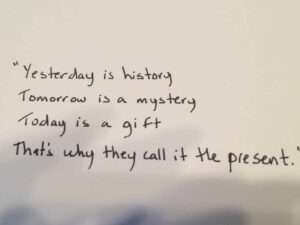 "Yesterday is history
Tomorrow is a mystery
Today is a gift
That's why they call it the present."